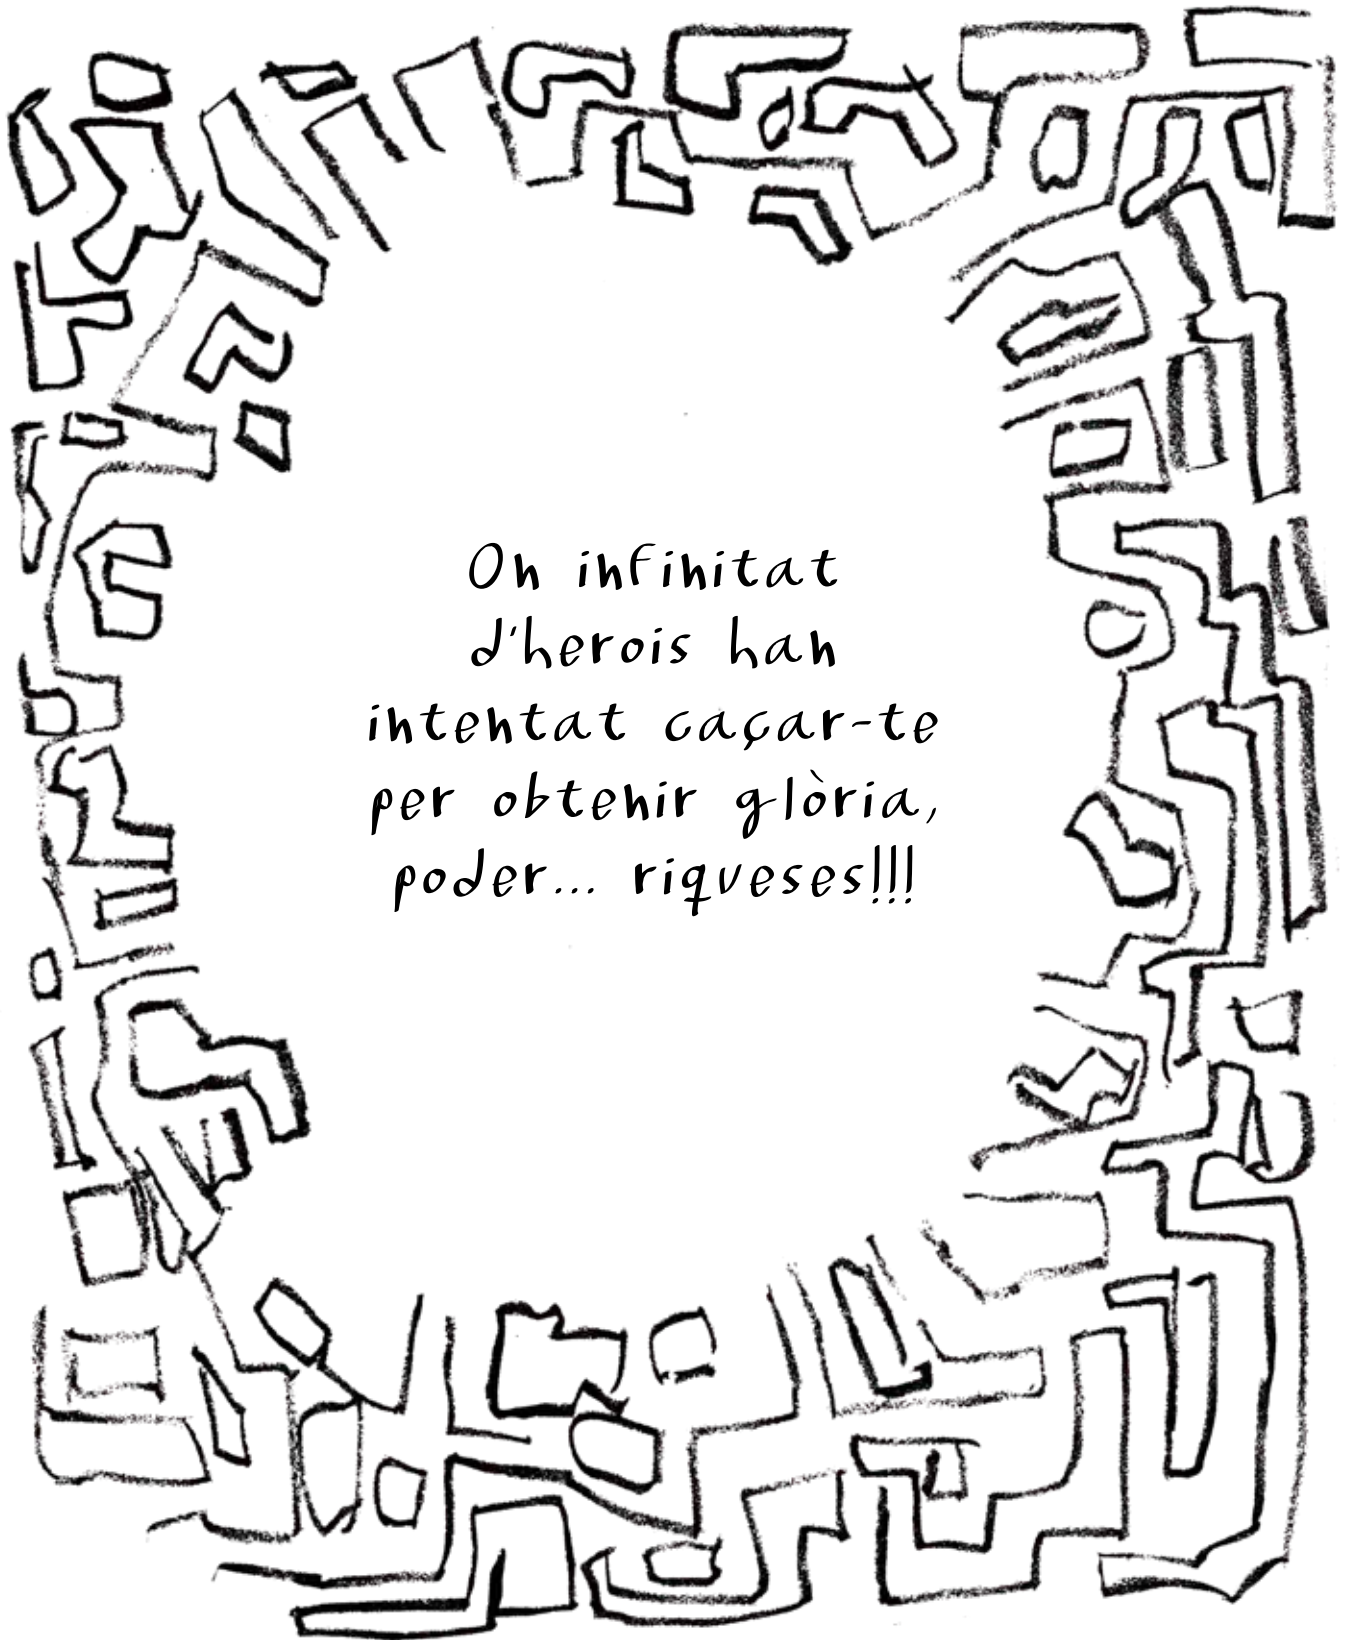 On infinitat
d'herois han
intentat caçar-te
per obtenir glòria,
poder... riqueses!!!